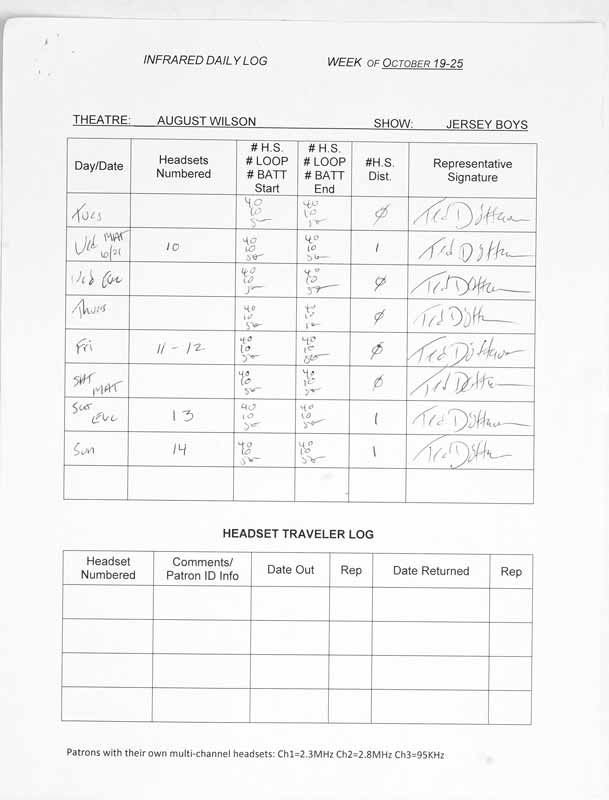 INFRARED DAILY LOG WEEK OF OCTOBER 19-25
THEATRE: AUGUST WILSON SHOW: JERSEY BOYS
Day/Date Headsets Numbered # H.S. # LOOP # BATT Start # H.S. # LOOP # BATT End #H.S. Dist. Representative Signature
Tues 40 10 50 40 10 50 Ø Ted
Wed MAT 10/21 10 40 10 50 40 10 50 1 Ted
Wed Eve 40 10 50 40 10 50 Ø Ted
Thurs 40 10 50 40 10 50 Ø Ted
Fri 11 - 12 40 10 50 40 10 50 Ø Ted
SAT MAT 40 10 50 40 10 50 Ø Ted
Sat Eve 13 40 10 50 40 10 50 1 Ted
Sun 14 40 10 50 40 10 50 1 Ted
HEADSET TRAVELER LOG
Headset Numbered Comments/ Patron ID Info Date Out Rep Date Returned Rep
Patrons with their own multi-channel headsets: Ch1=2.3MHz Ch2=2.8MHz Ch3=95KHz